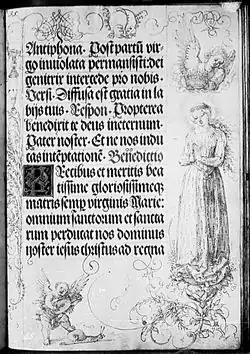 Antiphona. Post partū vir-
go inviolata permansisti: dei
genitrix intercede pro nobis.
Versi. Diffusa est gratia in la
bijs tuis. Respon. Propterea
benedixit te deus ineternum.
Pater noster. Et ne nos indu
cas in tēptationē. Benedictio
Precibus et meritis bea
tissime gloriosissimeqz
matris semp virginis Marie:
omnium sanctorum et sancta
rum perducat nos dominus
noster iesus christus ad regna